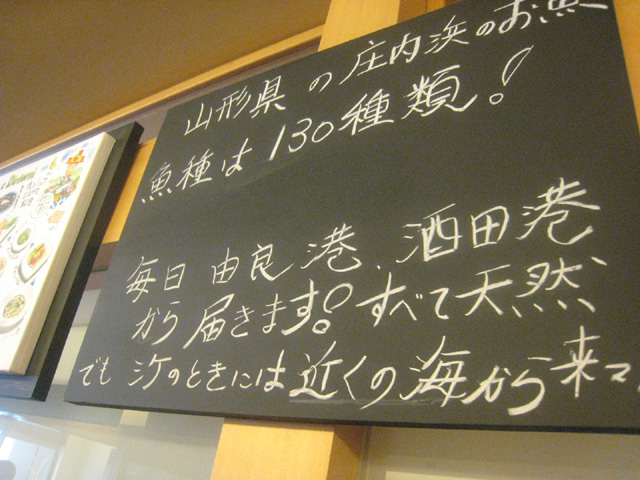 山形県の庄内浜のお魚
魚種は130種類!
毎日 由良港、酒田港
から届きます。すべて天然、
でも シケのときには近くの海から来て